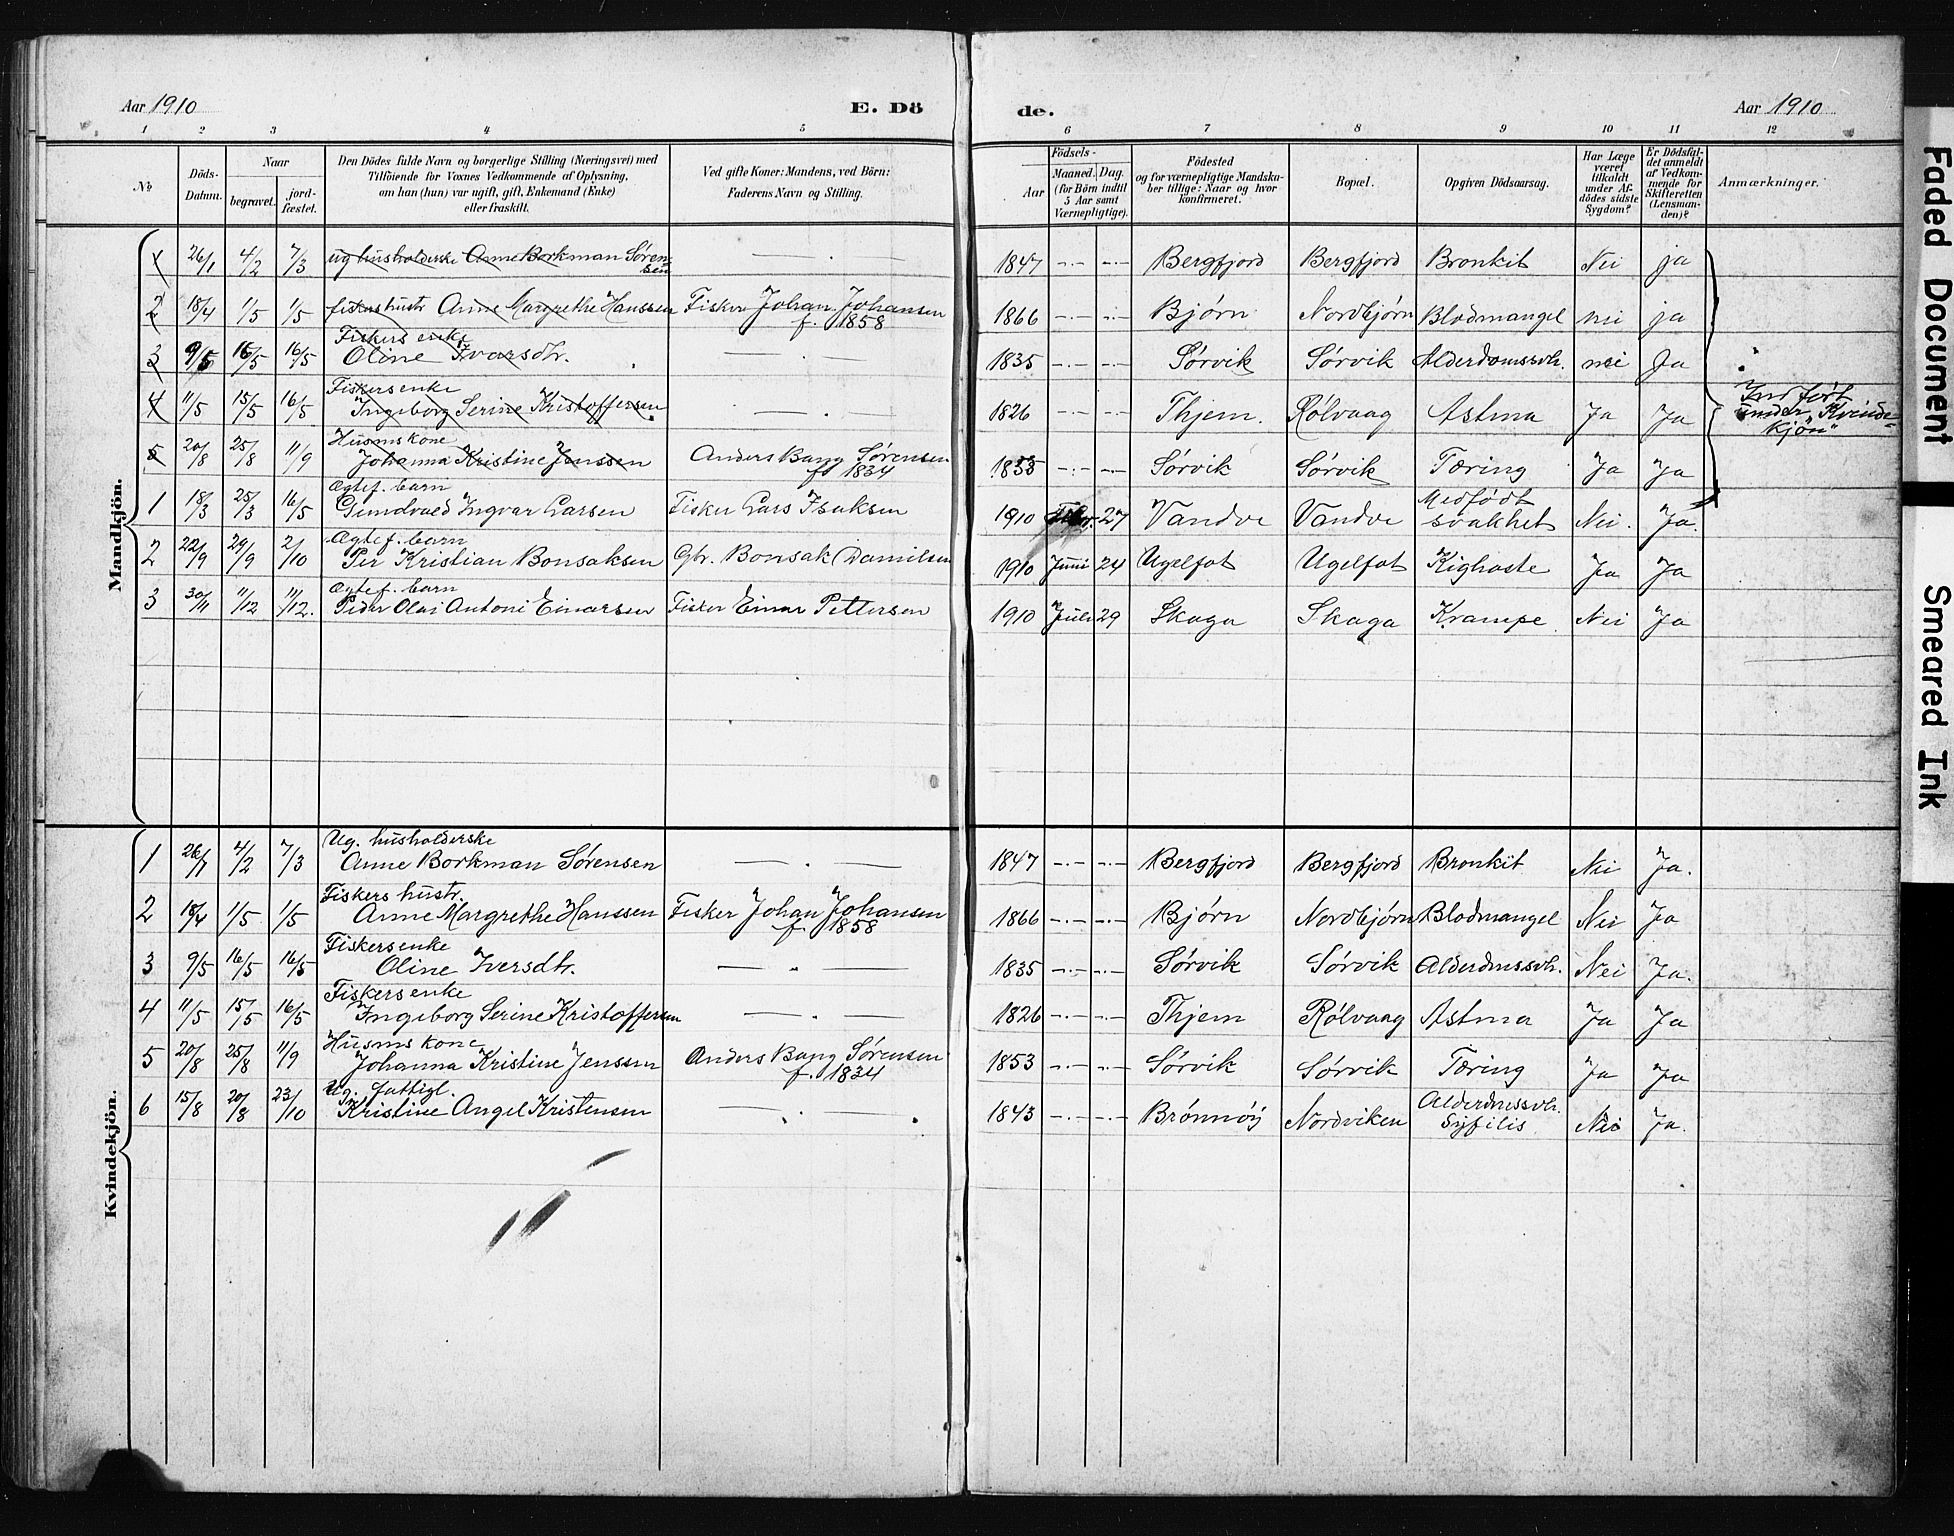 Aar 1910
E. Dö
de.
Aar 1910
1 2 3 4 5 6 7 8 9 10 11 12
No
Döds-Datum.
Naar
begravet.
jord-fæstet.
Den Dödes fulde Navn og borgerlige Stilling (Næringsvei) med
Tilföiende for Voxnes Vedkommende af Oplysning,
om han (hun) var ugift, gift, Enkemand (Enke)
eller fraskilt.
Ved gifte Koner: Mandens, ved Börn:
Faderens Navn og Stilling.
Födsels-
Aar
Maaned. Dag.
(for Börn indtil
5 Aar samt
Værnepligtige).
Födested
og for værnepligtige Mandska-
ber tillige: Naar og hvor
konfirmeret.
Bopæl.
Opgiven Dödsaarsag.
Har Læge
været
tilkaldt
under Af-
dödes sidste
Sygdom?
Er Dödsfal-
det anmeldt
af Vedkom-
mende for
Skifteretten
(Lensman-
den)?
Anmærkninger.
Mandkjön.
1 26/1 4/2 7/3 ug husholderske Anne Borkman Sørensen — . — 1847 —.— —.— Bergfjord Bergfjord Bronkit Nei ja
2 18/4 1/5 1/5 fiskers hustr Anne Margrethe Hanssen Fisker Johan Johansen f. 1858 1866 —.— —.— Bjørn Nordbjørn Blodmangel nei ja
3 9/5 16/5 16/5 Fiskers enke Oline Ivarsdtr. — . — 1835 —.— —.— Sørvik Sørvik Alderdomssvh. nei Ja
4 11/5 15/5 16/5 Fiskersenke Ingeborg Serine Kristoffersen — . — 1826 —.— —.— Thjem. Rølvaag Astma Ja Ja
Indført
under "Kvinde-
kjøn"
5 20/8 25/8 11/9 Husmskone Johanna Kristine Jenssen Anders Bang Sørensen f. 1834 1853 —.— —.— Sørvik Sørvik Tæring Ja Ja
1 18/3 25/3 16/5 Ægtef. barn Gundvald Ingvar Larsen Fisker Lars Isaksen 1910 Febr. 27 Vandve Vandve Medfødt svakhet Nei. Ja.
2 22/9 29/9 2/10 Ægtef. barn Per Kristian Bonsaksen Gbr. Bonsak Danielsen 1910 Juni 24 Ugelfot Ugelfot Kighoste Ja Ja
3 30/11 11/12 11/12. Ægtef. barn Peder Olai Antoni Einarsen Fisker Einar Pettersen 1910 Juli 29 Skaga Skaga Krampe Nei Ja
Kvindekjön.
1 26/1 4/2 7/3 Ug. husholderske Anne Borkman Sørensen — . — 1847 —.— —.— Bergfjord Bergfjord Bronkit Nei Ja.
2 18/4 1/5 1/5 Fiskers hustr. Anne Margrethe Hanssen Fisker Johan Johansen f. 1858 1866 —.— —.— Bjørn Nordbjørn Blodmangel Nei Ja
3 9/5 16/5 16/5 Fiskersenke Oline Iversdtr. — . — 1835 —.— —.— Sørvik Sørvik Alderdmssvh. Nei Ja.
4 11/5 15/5 16/5 Fiskersenke Ingeborg Serine Kristoffersen — . — 1826 —.— —.— Thjem Rølvaag Astma Ja Ja
5 20/8 25/8 11/9 Husmskone Johanna Kristine Jenssen Anders Bang Sørensen f. 1834 1853 —.— —.— Sørvik Sørvik Tæring Ja Ja
6 15/8 20/8 23/10 Ug. fattigl. Kristine Angel Kristensen — . — 1843 —.— —.— Brønnøy Nordviken Alderdmssvh. Syfilis Nei Ja.
Faded Document
Smeared Ink